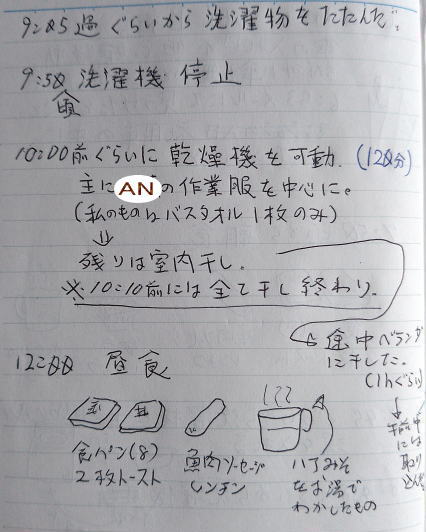 9:25過ぐらいから洗濯物をたたんだ。
9:50 洗濯機 停止
頃
10:00前ぐらいに乾燥機を可動. (120分)
主に AN の作業服を中心に。
(私のものはバスタオル1枚のみ)
残りは室内干し.
※10:10前には全て干し終わり.
途中ベランダ
に干した.
(1hぐらい)
午前中
には
取り
込んだ
12:00 昼食
食パン(8)
2枚トースト
魚肉ソーセージ
レンチン
八丁みそ
をお湯で
わかしたもの